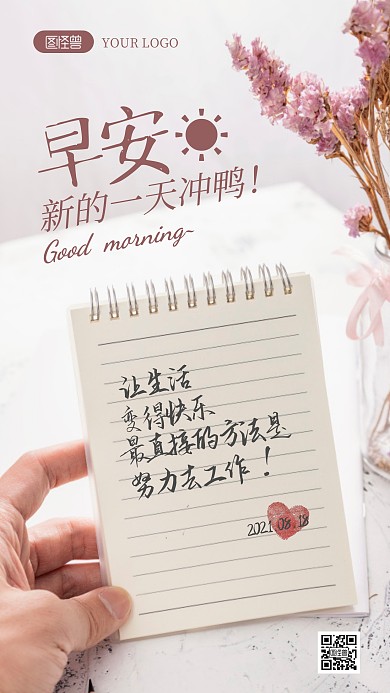 图怪兽 YOUR LOGO
早安
新的一天冲鸭！
Good morning~
让生活
变得快乐
最直接的方法是
努力去工作！
2021.08.18
图怪兽